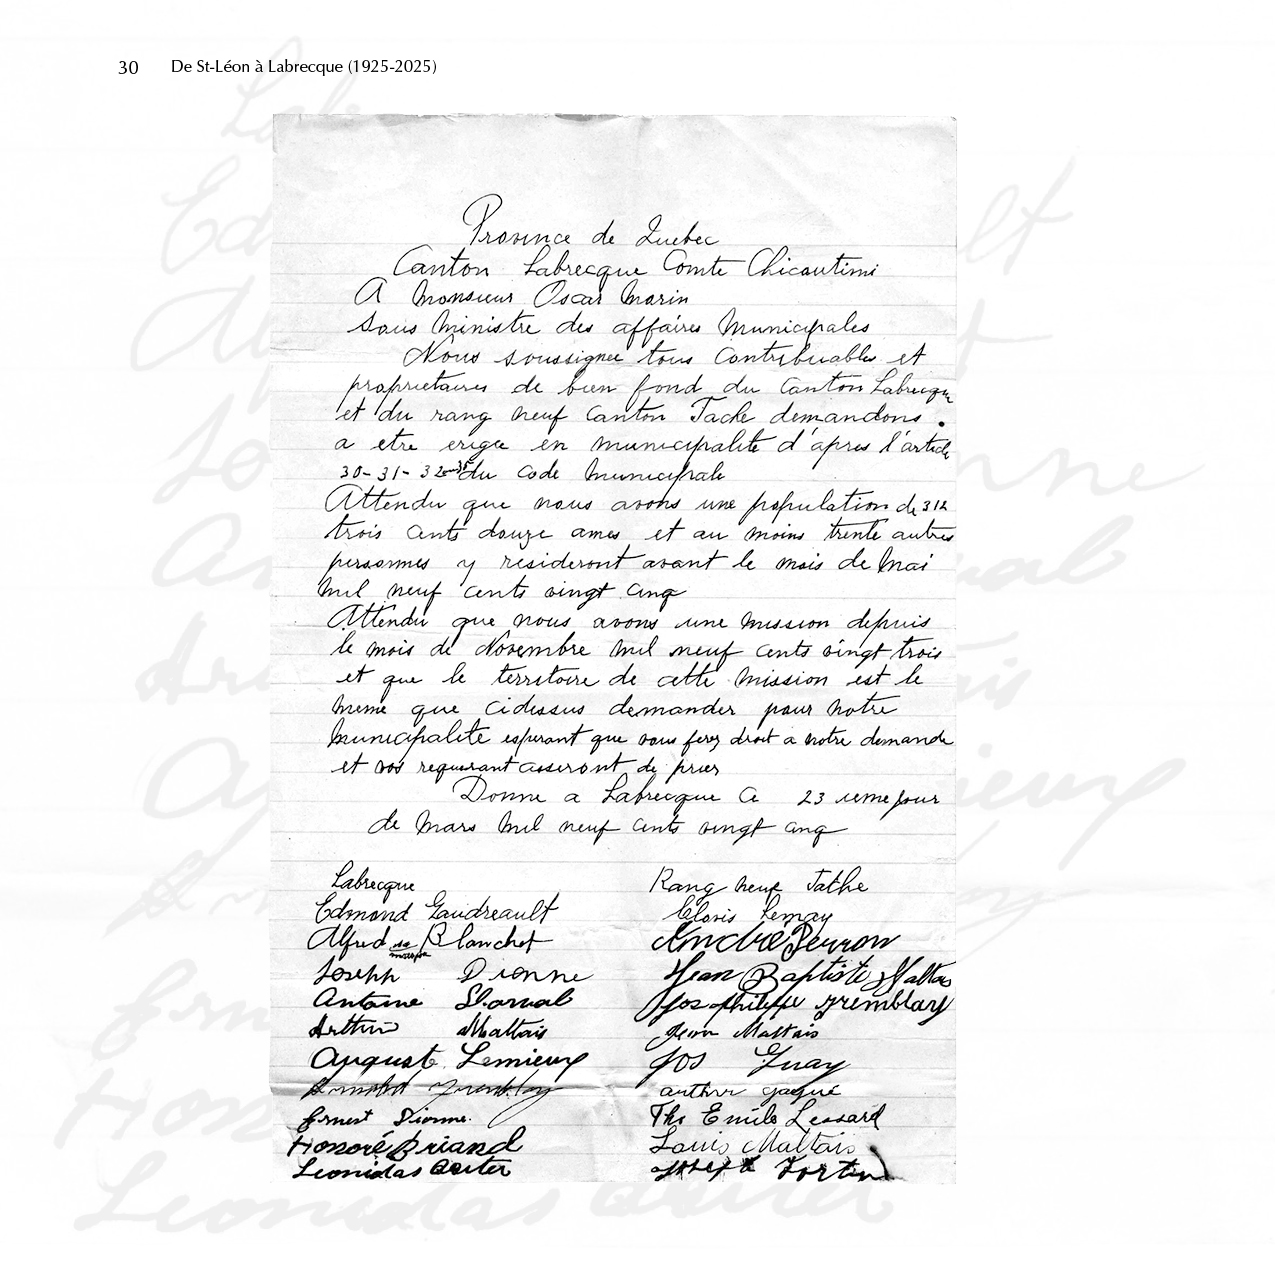 30 De St-Léon à Labrecque (1925-2025)
Province de Quebec
Canton Labrecque Comte Chicoutimi
A Monsieur Oscar Morin
Sous Ministre des affaires Municipales
Nous soussignee tous contribuables et
proprietaires de bien fond du Canton Labrecque
et du rang neuf Canton Tache demandons
a etre erigee en municipalite d'apres l'article
30-31-32 du code Municipale
Attendu que nous avons une population de 312
trois cents douze ames et au moins trente autres
personnes y resideront avant le mois de Mai
Mil neuf cents vingt cinq
Attendu que nous avons une mission depuis
le mois de Novembre Mil neuf cents vingt trois
et que le territoire de cette mission est le
meme que cidessus demander pour notre
Municipalite esperant que vous ferez droit a notre demande
et vos requerant cesseront de prier
Donne a Labrecque ce 23 ieme jour
de Mars Mil neuf cents vingt cinq
Labrecque
Edmond Gaudreault
Alfred Blanchet
Joseph Dionne
Antoine
Arthur Maltais
Auguste Lemieux
Tremblay
Ernest Dionne
Honoré Briand
Leonidas
Rang neuf Tathe
Clovis Lemay
André Perron
Jean Baptiste Maltais
Jos philippe Tremblay
Jean Maltais
Jos Guay
arthur gagné
Ths Emile Lessard
Louis Maltais
Joseph Fortin